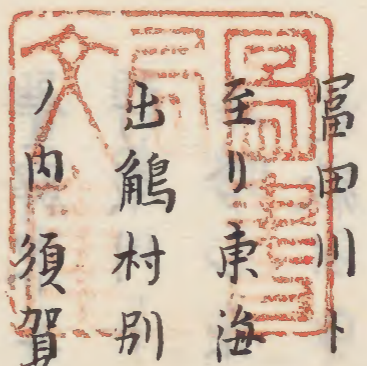 冨田川ト
至リ東海
出鵤村別
ノ内須賀